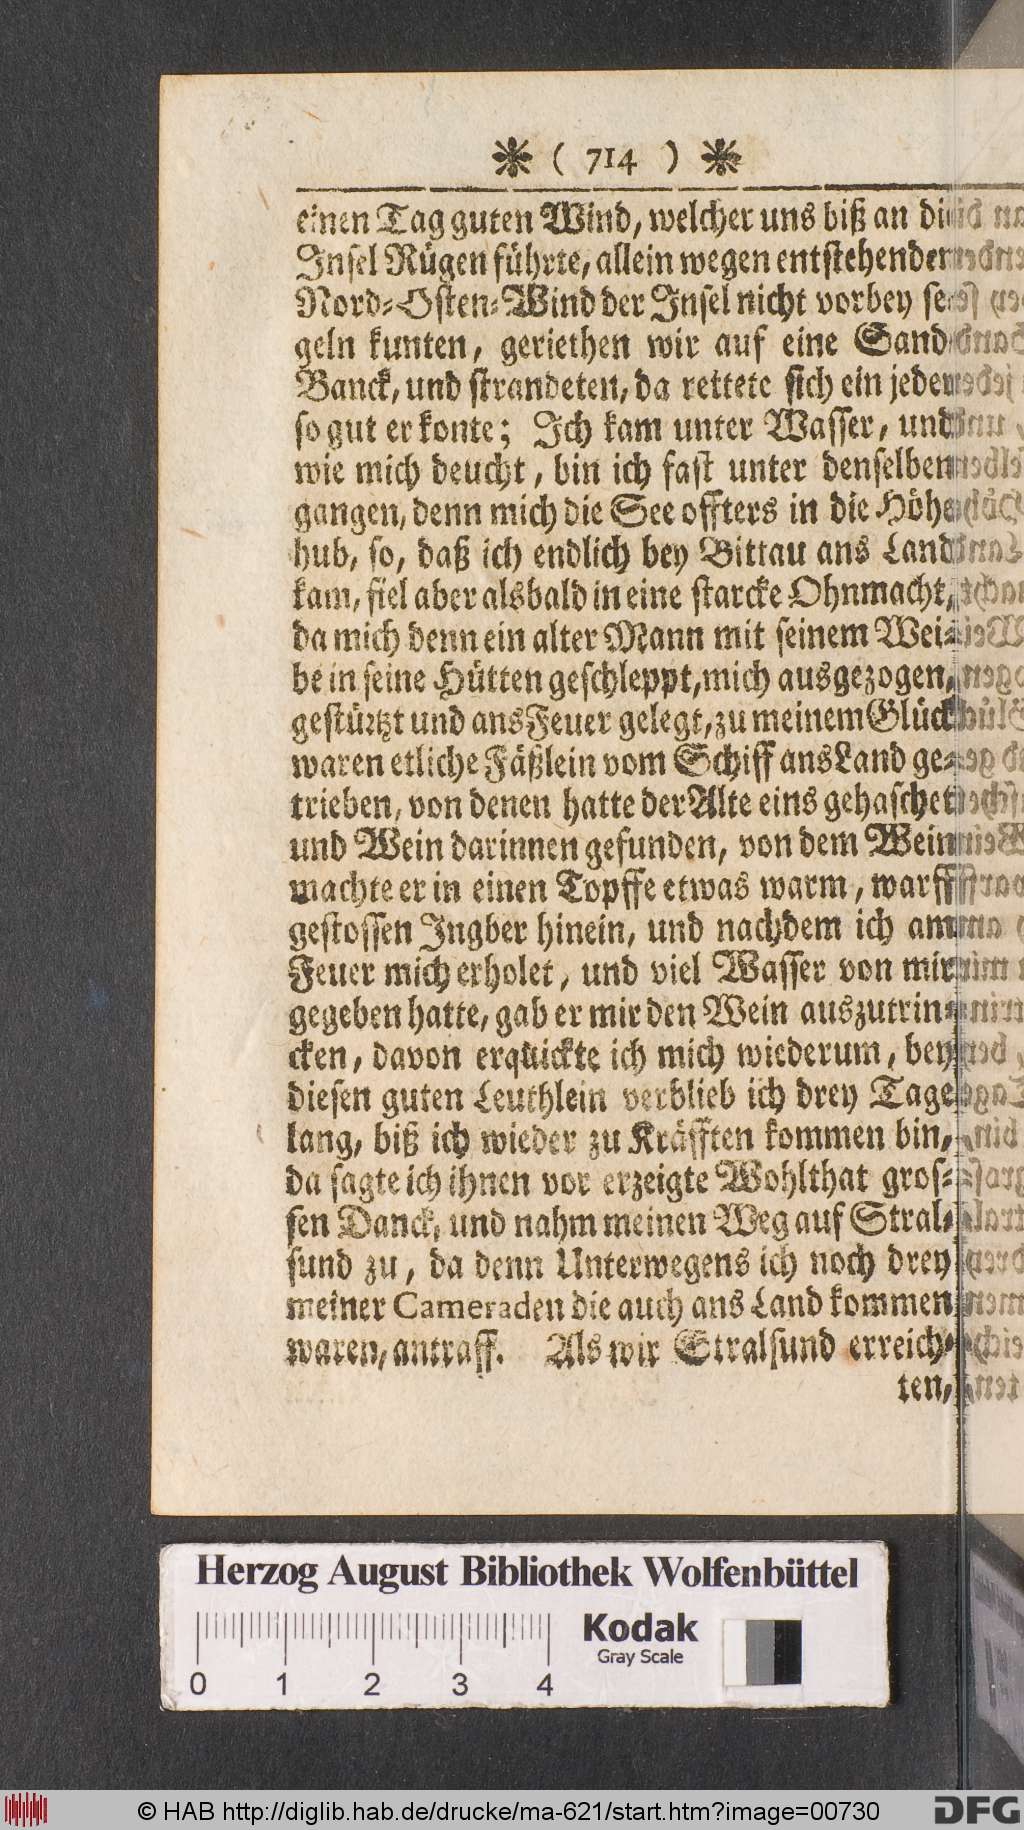 ( 714 )
einen Tag guten Wind, welcher uns biß an die
Insel Rügen führte, allein wegen entstehenden
Nord-Osten-Wind der Insel nicht vorbey se-
geln kunten, geriethen wir auf eine Sand-
Banck, und strandeten, da rettete sich ein jeder
so gut er konte; Ich kam unter Wasser, und
wie mich deucht, bin ich fast unter denselben
gangen, denn mich die See offters in die Höhe
hub, so, daß ich endlich bey Bittau ans Land
kam, fiel aber alsbald in eine starcke Ohnmacht,
da mich denn ein alter Mann mit seinem Wei-
be in seine Hütten geschleppt, mich ausgezogen,
gestürtzt und ans Feuer gelegt, zu meinem Glück
waren etliche Fäßlein vom Schiff ans Land ge-
trieben, von denen hatte der Alte eins gehaschet
und Wein darinnen gefunden, von dem Wein
machte er in einen Topffe etwas warm, warff
gestossen Ingber hinein, und nachdem ich am
Feuer mich erholet, und viel Wasser von mir
gegeben hatte, gab er mir den Wein auszutrin-
cken, davon erquickte ich mich wiederum, bey
diesen guten Leuthlein verblieb ich drey Tage
lang, biß ich wieder zu Kräfften kommen bin,
da sagte ich ihnen vor erzeigte Wohlthat gros-
sen Danck, und nahm meinen Weg auf Stral-
sund zu, da denn Unterwegens ich noch drey
meiner Cameraden die auch ans Land kommen
waren, antraff. Als wir Stralsund erreich-
ten,
Herzog August Bibliothek Wolfenbüttel
Kodak
Gray Scale
0 1 2 3 4
© HAB http://diglib.hab.de/drucke/ma-621/start.htm?image=00730
DFG